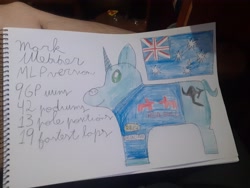 Mark
Webber
MLP version
9 GP wins
42 podiums
13 pole positions
19 fastest laps